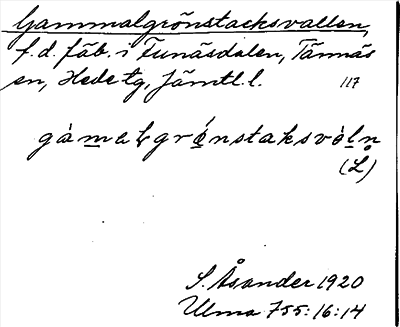 Gammalgrönstacksvallen,
f.d. fäb. i Funäsdalen, Tännäs
sn, Hede tg, Jämtl. l. 117
gàmalgrǿnstaksvàln̥
(L)
S. Åsander 1920
Ulma 755:16:14